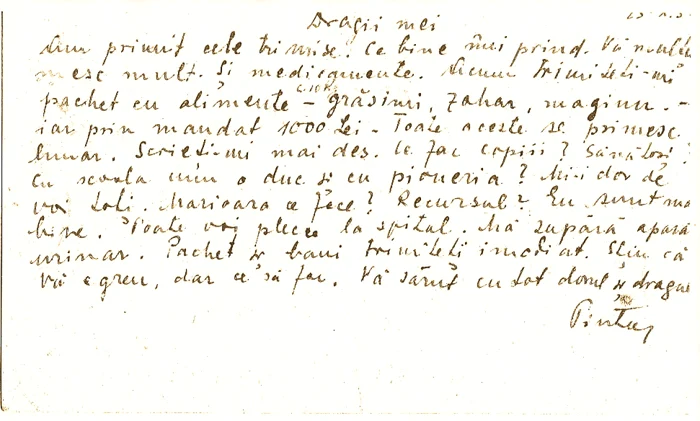 Dragii mei
Am primit cele trimise. Ce bine îmi prind. Vă mulțu
mesc mult. Și medicamente. Acum trimiteți-mi
pachet cu alimente - grăsimi, zahar, magiun. -
iar prin mandat 1000 Lei - Toate aceste se primesc
lunar. Scrieți-mi mai des. Ce fac copiii? Sănătoși?
Cu scoala cum o duc și cu pioneria? Mi-i dor de
voi toți. Marioara ce face? Recursul? Eu sunt ma
bine. Poate voi pleca la spital. Mă supără apara
urinar. Pachet și bani trimiteți imediat. Știu că
vă e greu, dar ce să fac. Vă sărut cu tot dorul și dragos